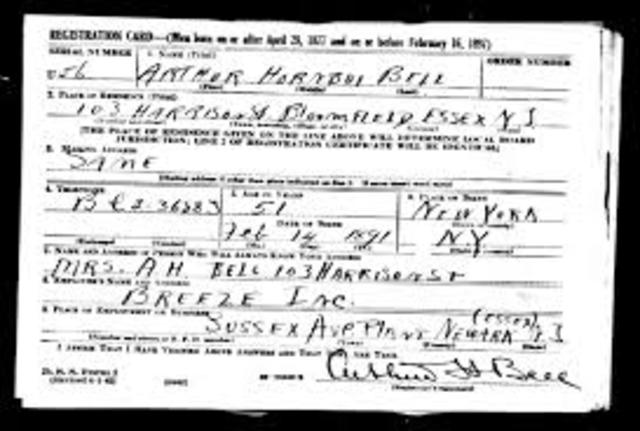 REGISTRATION CARD—(Men born on or after April 28, 1877 and on or before February 16, 1897)
SERIAL NUMBER 1. NAME (Print) ORDER NUMBER
U 56 ARTHUR HORNBUI BELL
(First) (Middle) (Last)
2. PLACE OF RESIDENCE (Print)
103 HARRISON St BLOOMFIELD ESSEX N J
[THE PLACE OF RESIDENCE GIVEN ON THE LINE ABOVE WILL DETERMINE LOCAL BOARD
JURISDICTION; LINE 2 OF REGISTRATION CERTIFICATE WILL BE IDENTICAL]
3. MAILING ADDRESS
SAME
4. TELEPHONE 5. AGE IN YEARS 6. PLACE OF BIRTH
51 NEW YORK
DATE OF BIRTH
Feb 14 1891 NY
7. NAME AND ADDRESS OF PERSON WHO WILL ALWAYS KNOW YOUR ADDRESS
MRS. A H. BELL 103 HARRISON ST
8. EMPLOYER'S NAME AND ADDRESS
BREEZE INC.
9. PLACE OF EMPLOYMENT OR BUSINESS (ESSEX)
SUSSEX AVE PLANT NEWARK N J
I AFFIRM THAT I HAVE VERIFIED ABOVE ANSWERS AND THAT THEY ARE TRUE.
D. S. S. Form 1
Arthur H Bell